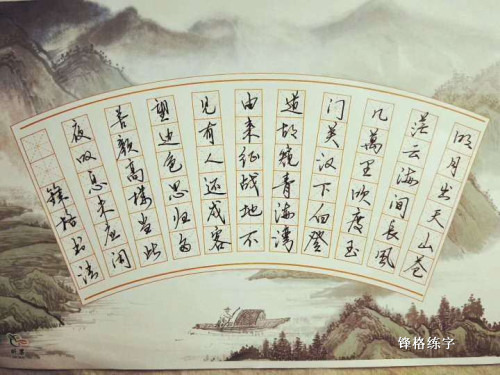 明月出天山苍
茫云海间長風
几萬里吹度玉
门关汉下白登
道胡窥青海湾
由来征战地不
见有人还戍客
望边色思归多
苦颜高楼当此
夜叹息未应闲
锋格书法
锋格练字